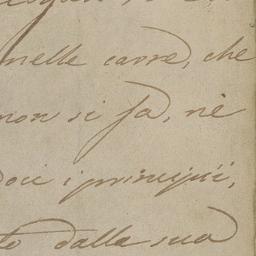 nelle carre, che
non si fa, nè
i principii,
dalla sua